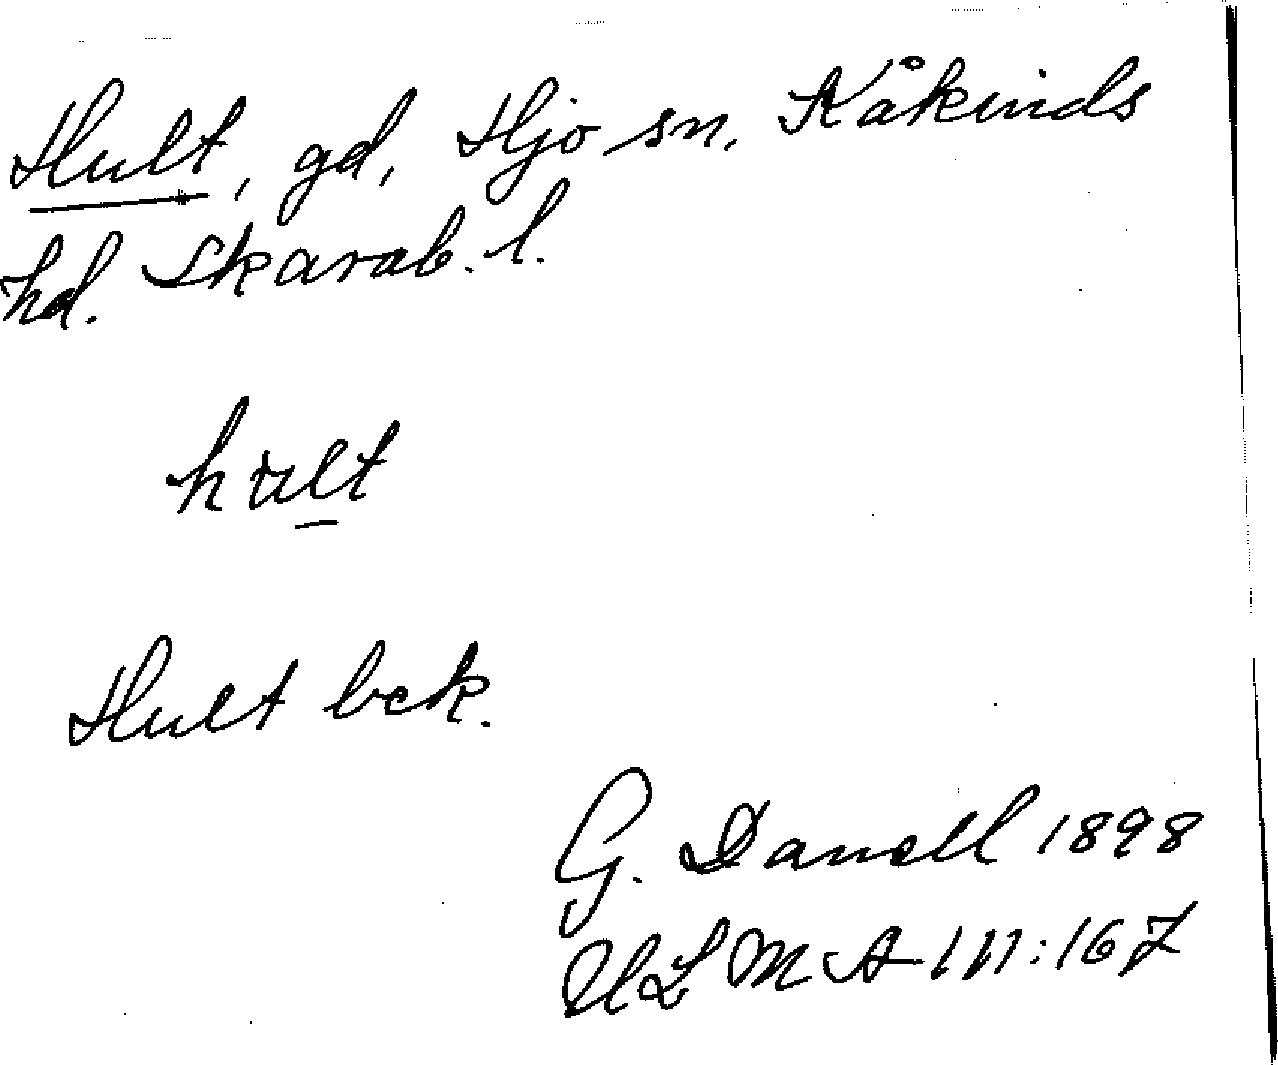 Hult, gd, Hjo sn, Kåkinds
hd. Skarab. l.
hult
Hult bek.
G. Danell 1898
ULMA 111:167